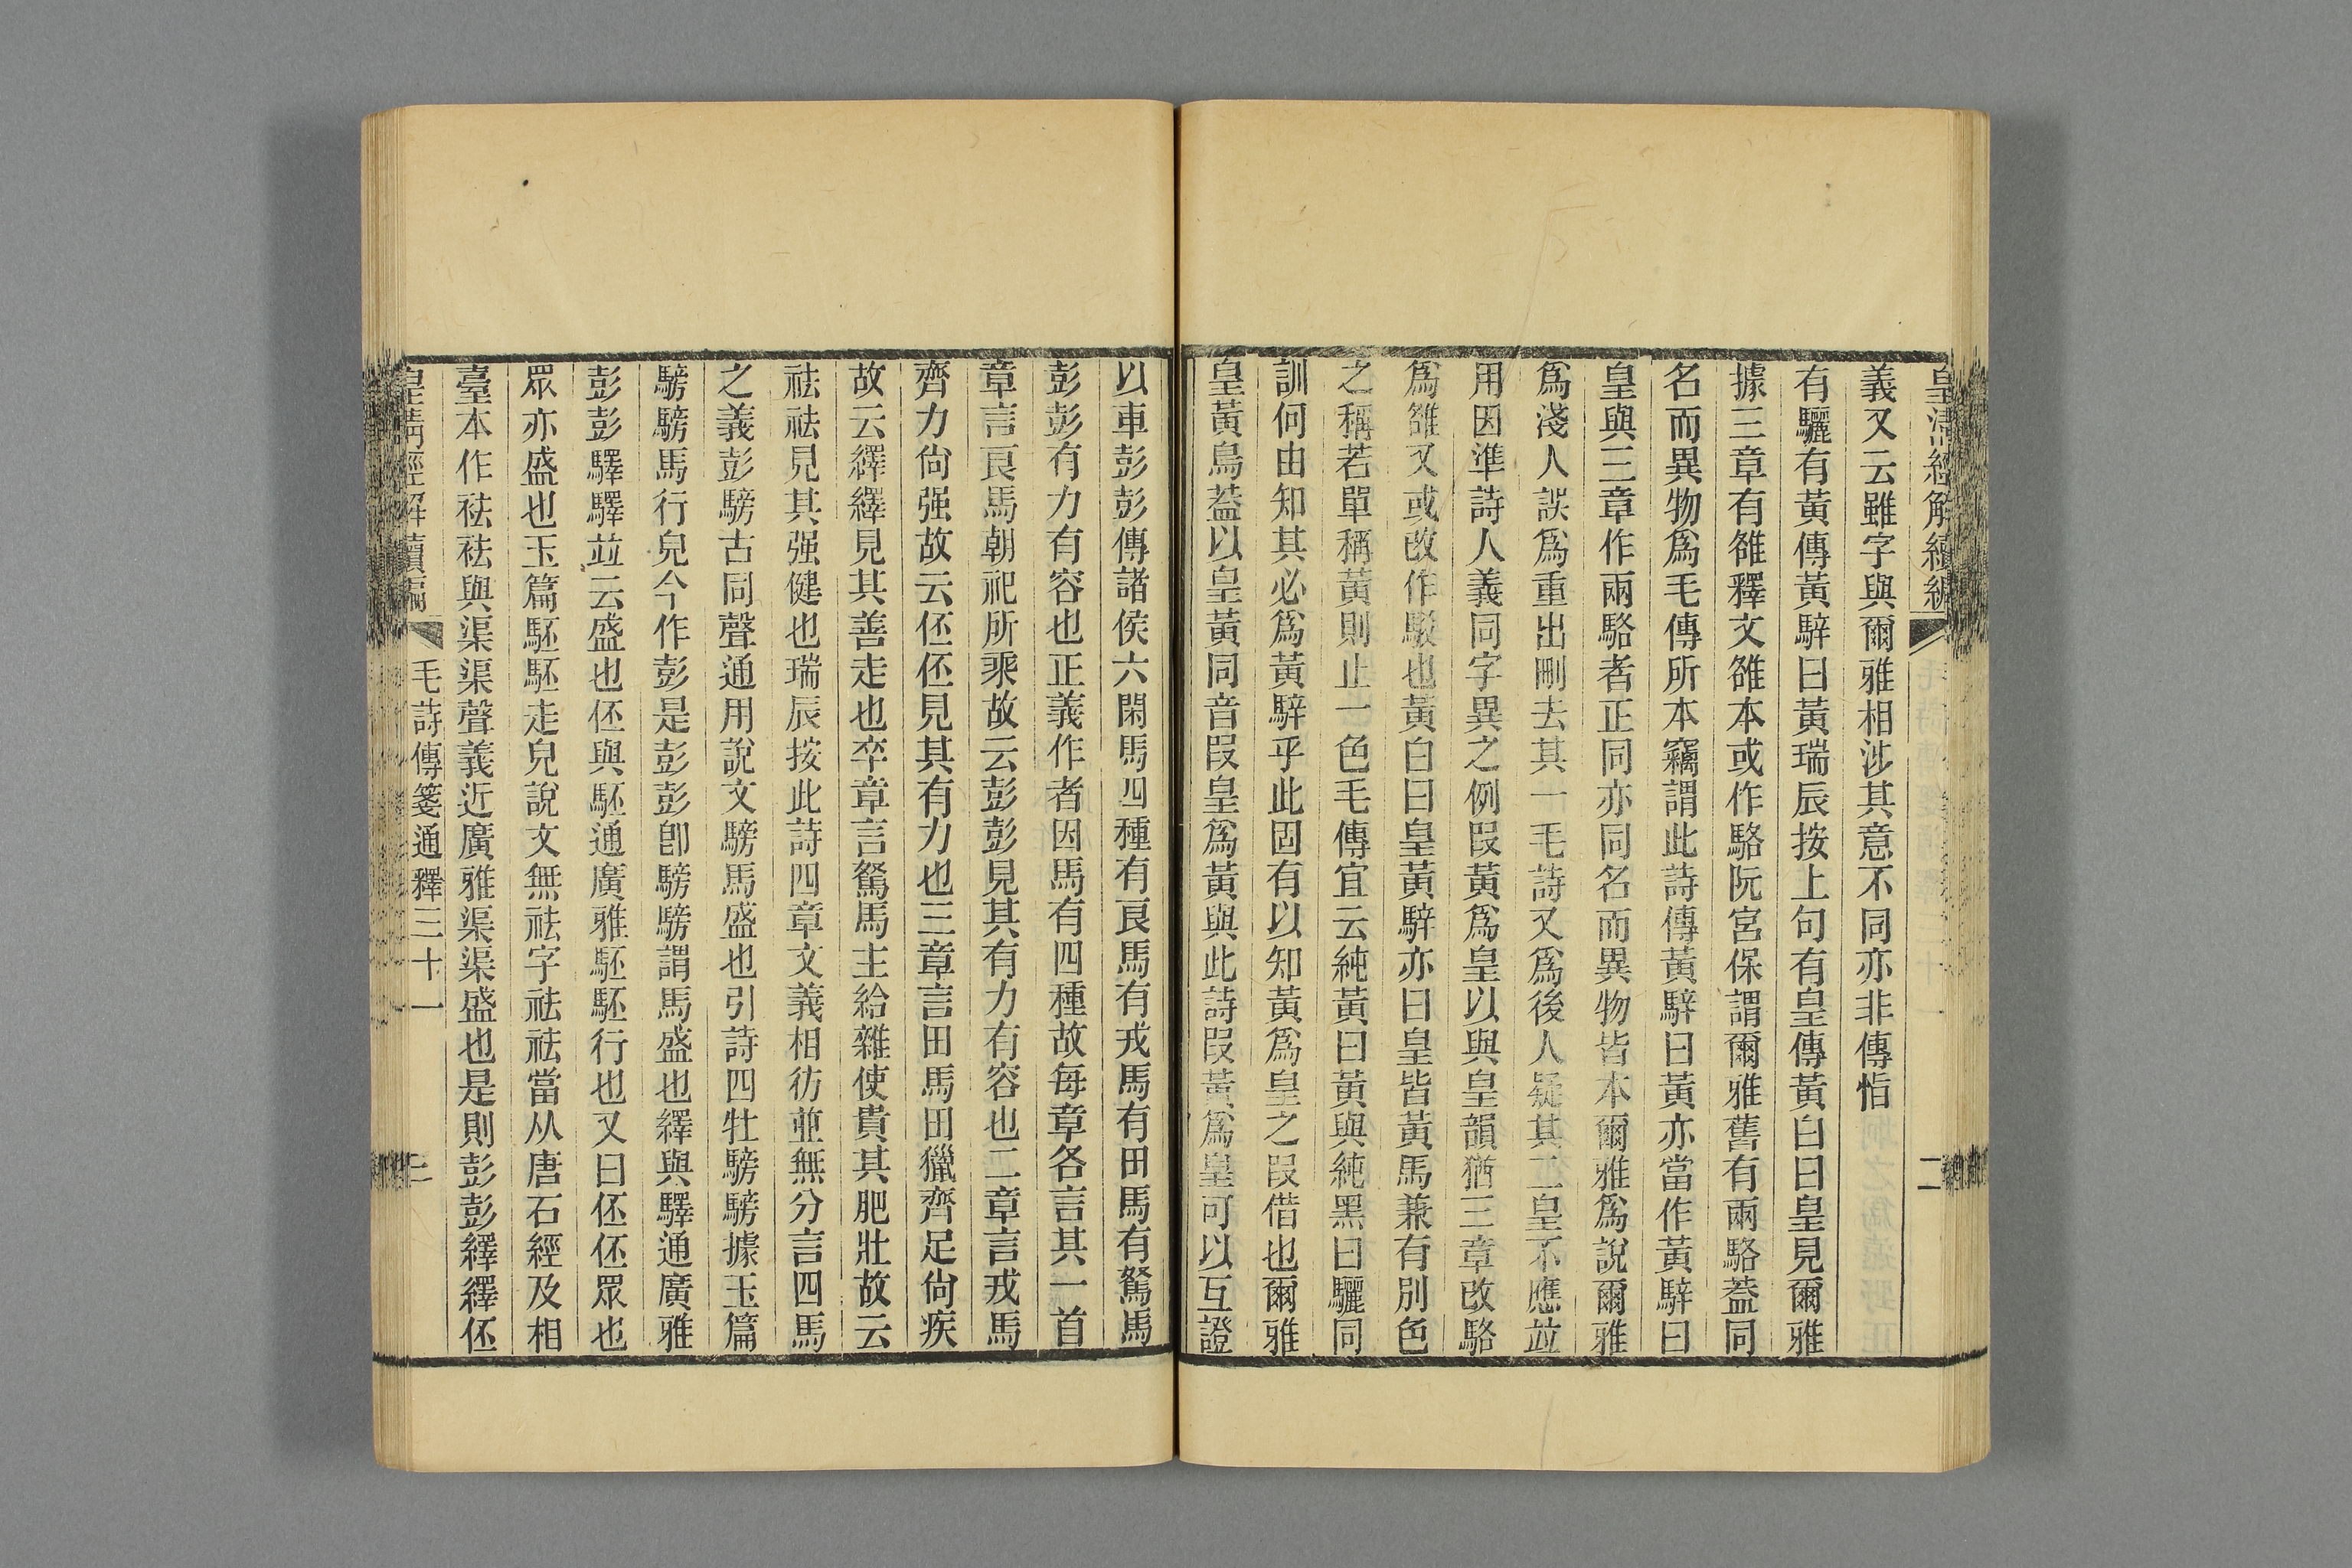 皇清經解續編
二
義又云雖字與爾雅相涉其意不同亦非傳恉
有驪有黃傳黃騂曰黃瑞辰按上句有皇傳黃白曰皇見爾雅
據三章有雒釋文雒本或作駱阮宮保謂爾雅舊有兩駱葢同
名而異物爲毛傳所本竊謂此詩傳黃騂曰黃亦當作黃騂曰
皇與三章作兩駱者正同亦同名而異物皆本爾雅爲說爾雅
爲淺人誤爲重出刪去其一毛詩又爲後人疑其二皇不應竝
用因準詩人義同字異之例叚黃爲皇以與皇韻猶三章改駱
爲雒又或改作駁也黃白曰皇黃騂亦曰皇皆黃馬兼有別色
之稱若單稱黃則止一色毛傳宜云純黃曰黃與純黑曰驪同
訓何由知其必爲黃騂乎此固有以知黃爲皇之叚借也爾雅
皇黃鳥葢以皇黃同音叚皇爲黃與此詩叚黃爲皇可以互證
以車彭彭傳諸侯六閑馬四種有良馬有戎馬有田馬有駑馬
彭彭有力有容也正義作者因馬有四種故每章各言其一首
章言良馬朝祀所乘故云彭彭見其有力有容也二章言戎馬
齊力尙强故云伾伾見其有力也三章言田馬田獵齊足尙疾
故云繹繹見其善走也卒章言駑馬主給雜使貴其肥壯故云
祛祛見其强健也瑞辰按此詩四章文義相彷並無分言四馬
之義彭騯古同聲通用說文騯馬盛也引詩四牡騯騯據玉篇
騯騯馬行皃今作彭是彭彭卽騯騯謂馬盛也繹與驛通廣雅
彭彭驛驛竝云盛也伾與駓通廣雅駓駓行也又曰伾伾眾也
眾亦盛也玉篇駓駓走皃說文無祛字祛祛當从唐石經及相
臺本作袪袪與渠渠聲義近廣雅渠渠盛也是則彭彭繹繹伾
皇清經解續編
毛詩傳箋通釋三十一
三